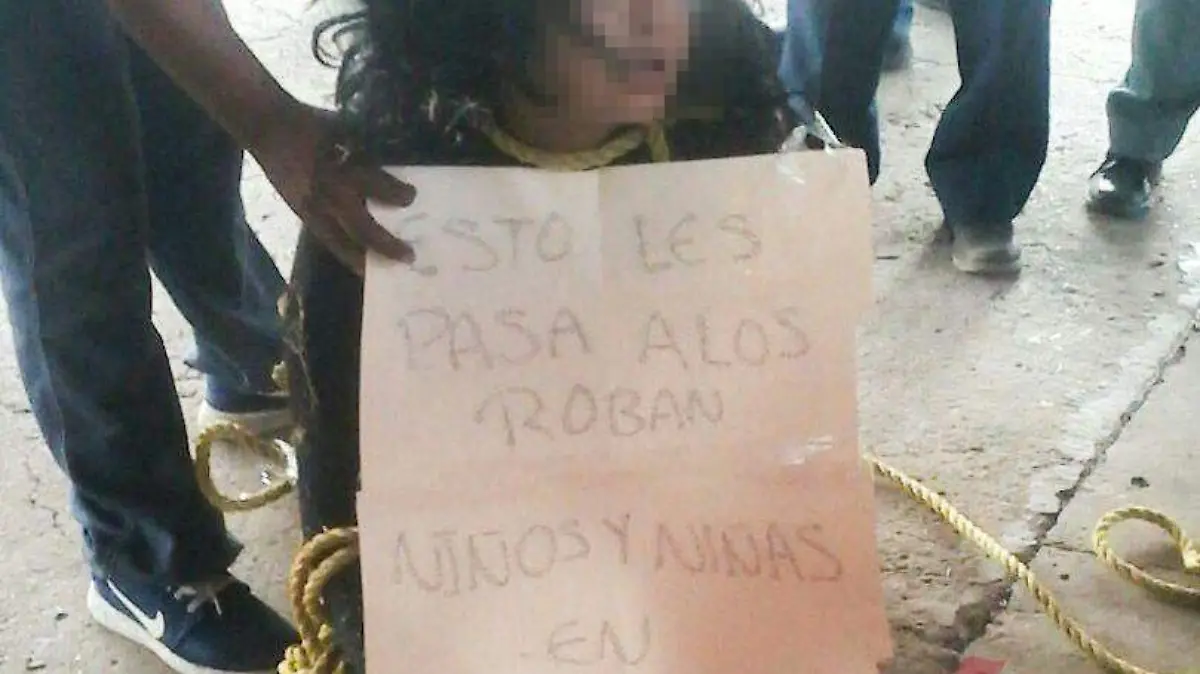 ESTO LES
PASA ALOS
ROBAN
NIÑOS Y NINAS
EN